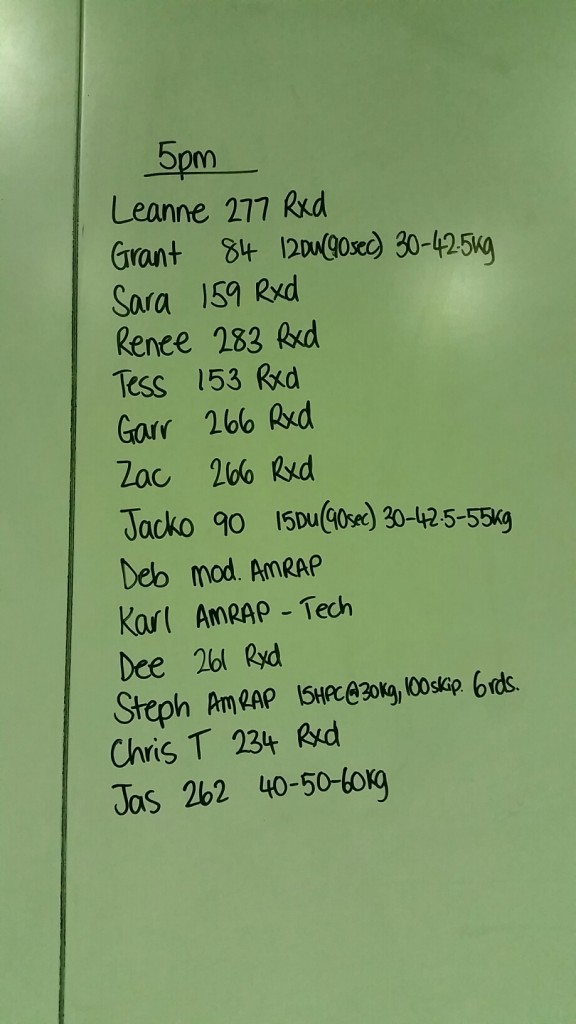 5pm
Leanne 277 Rxd
Grant 84 12DU(90sec) 30-42.5kg
Sara 159 Rxd
Renee 283 Rxd
Tess 153 Rxd
Garr 266 Rxd
Zac 266 Rxd
Jacko 90 15DU(90sec) 30-42.5-55kg
Deb mod. AMRAP
Karl AMRAP - Tech
Dee 261 Rxd
Steph AMRAP 15HPC@30kg, 100skip. 6rds.
Chris T 234 Rxd
Jas 262 40-50-60kg